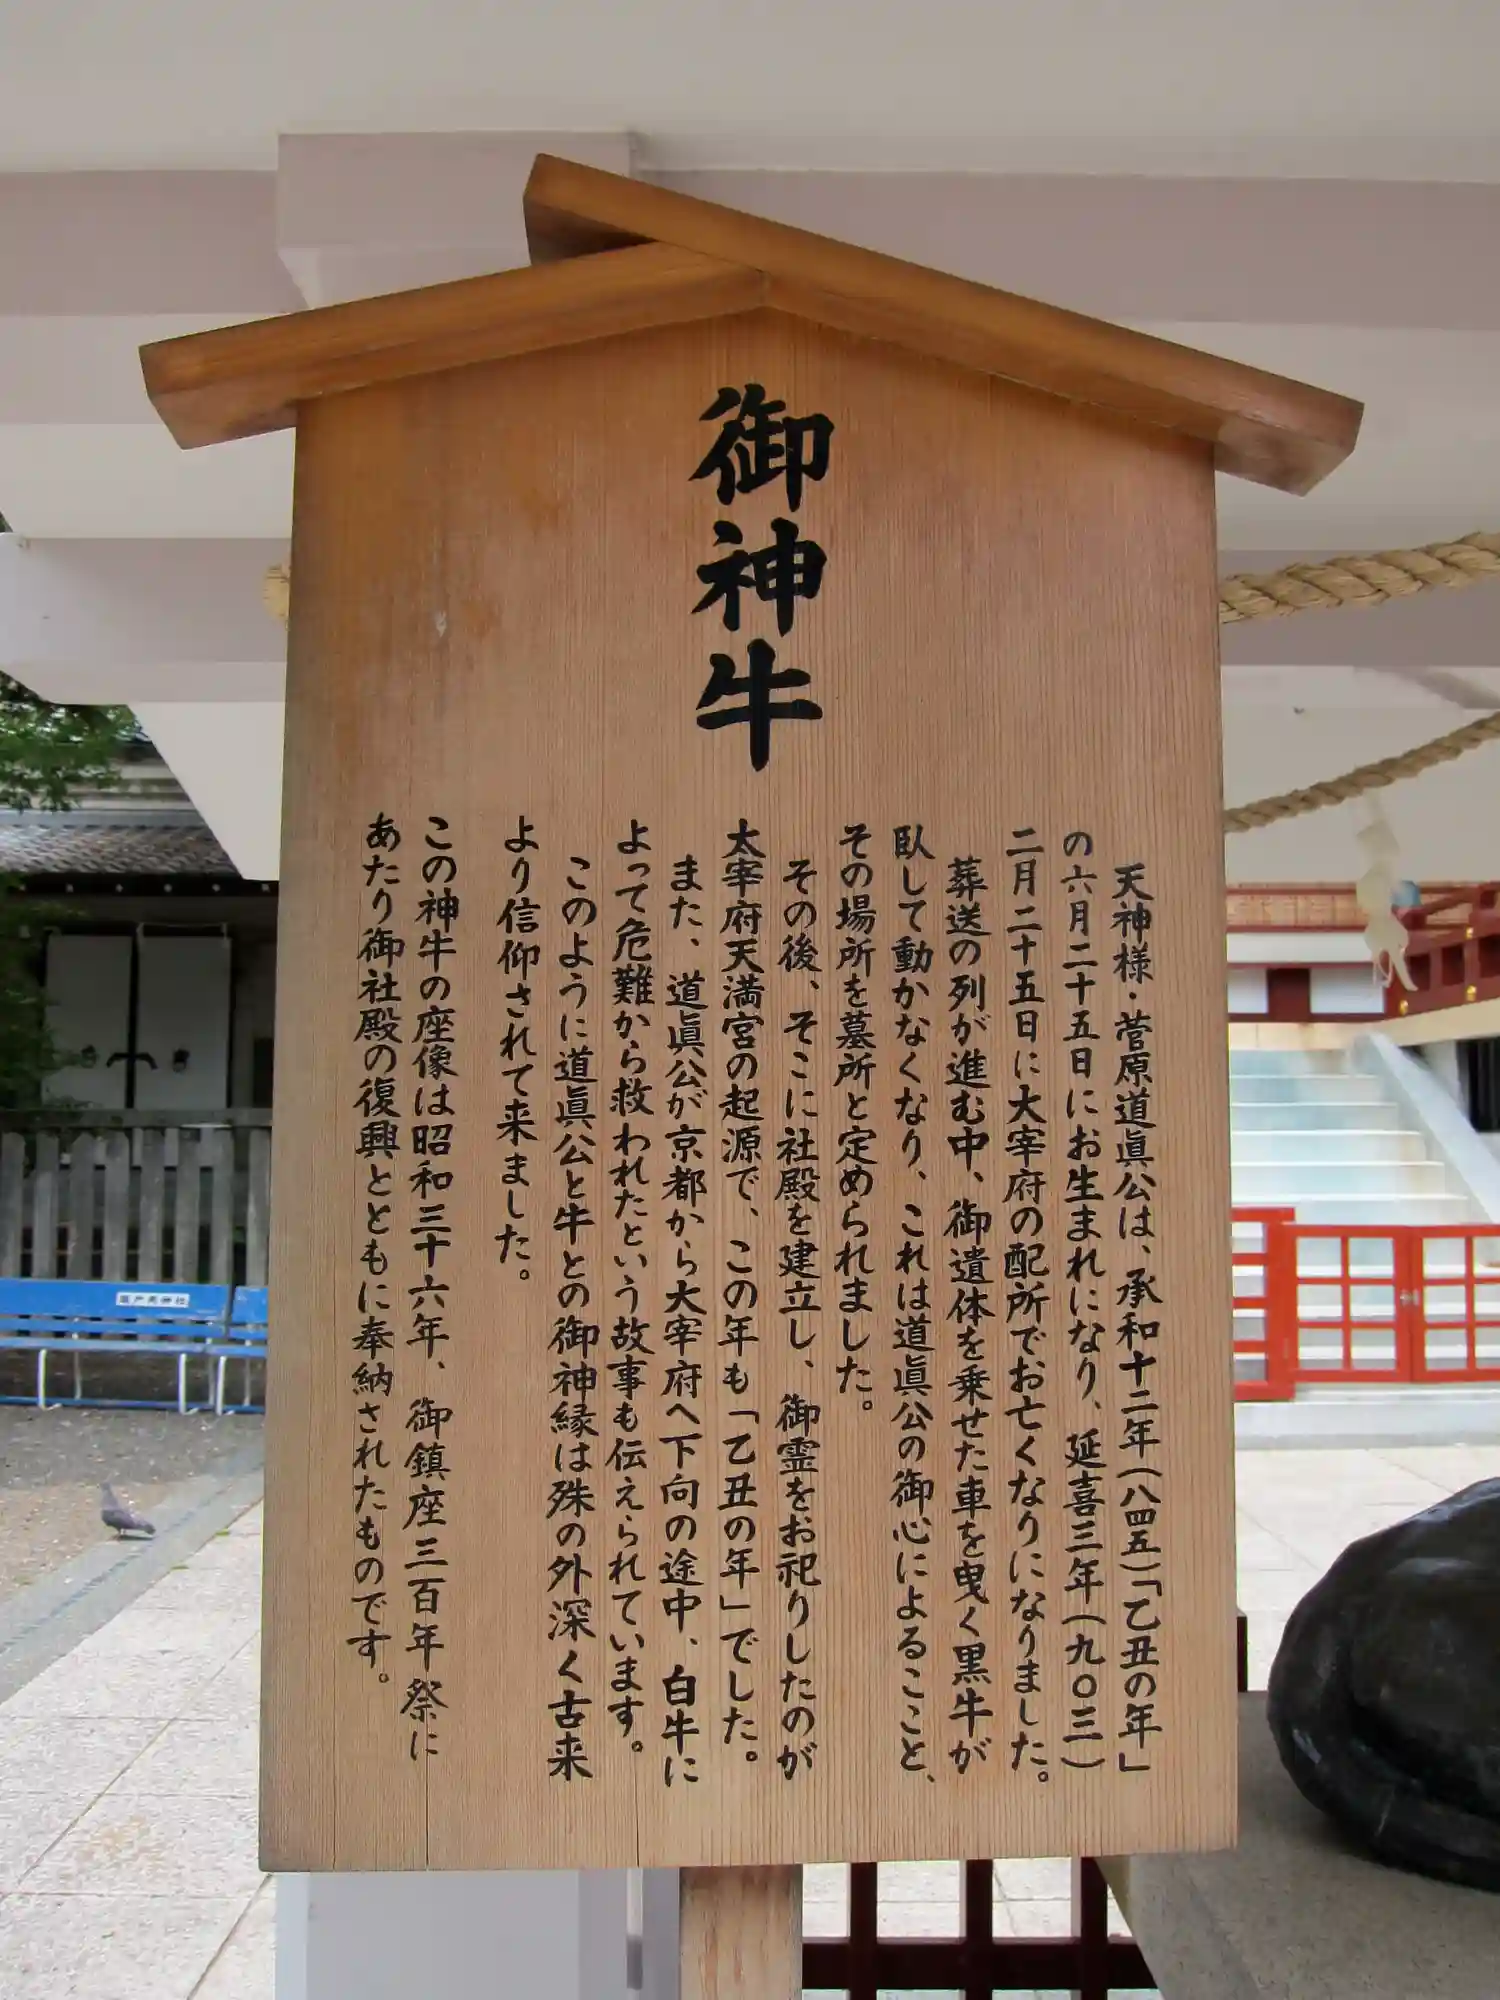 御神牛
天神様・菅原道眞公は、承和十二年(八四五)「乙丑の年」
の六月二十五日にお生まれになり、延喜三年(九〇三)
二月二十五日に大宰府の配所でお亡くなりになりました。
葬送の列が進む中、御遺体を乗せた車を曳く黒牛が
臥して動かなくなり、これは道眞公の御心によること、
その場所を墓所と定められました。
その後、そこに社殿を建立し、御霊をお祀りしたのが
太宰府天満宮の起源で、この年も「乙丑の年」でした。
また、道眞公が京都から大宰府へ下向の途中、白牛に
よって危難から救われたという故事も伝えられています。
このように道眞公と牛との御神縁は殊の外深く古来
より信仰されて来ました。
この神牛の座像は昭和三十六年、御鎮座三百年祭に
あたり御社殿の復興とともに奉納されたものです。
亀戸天神社